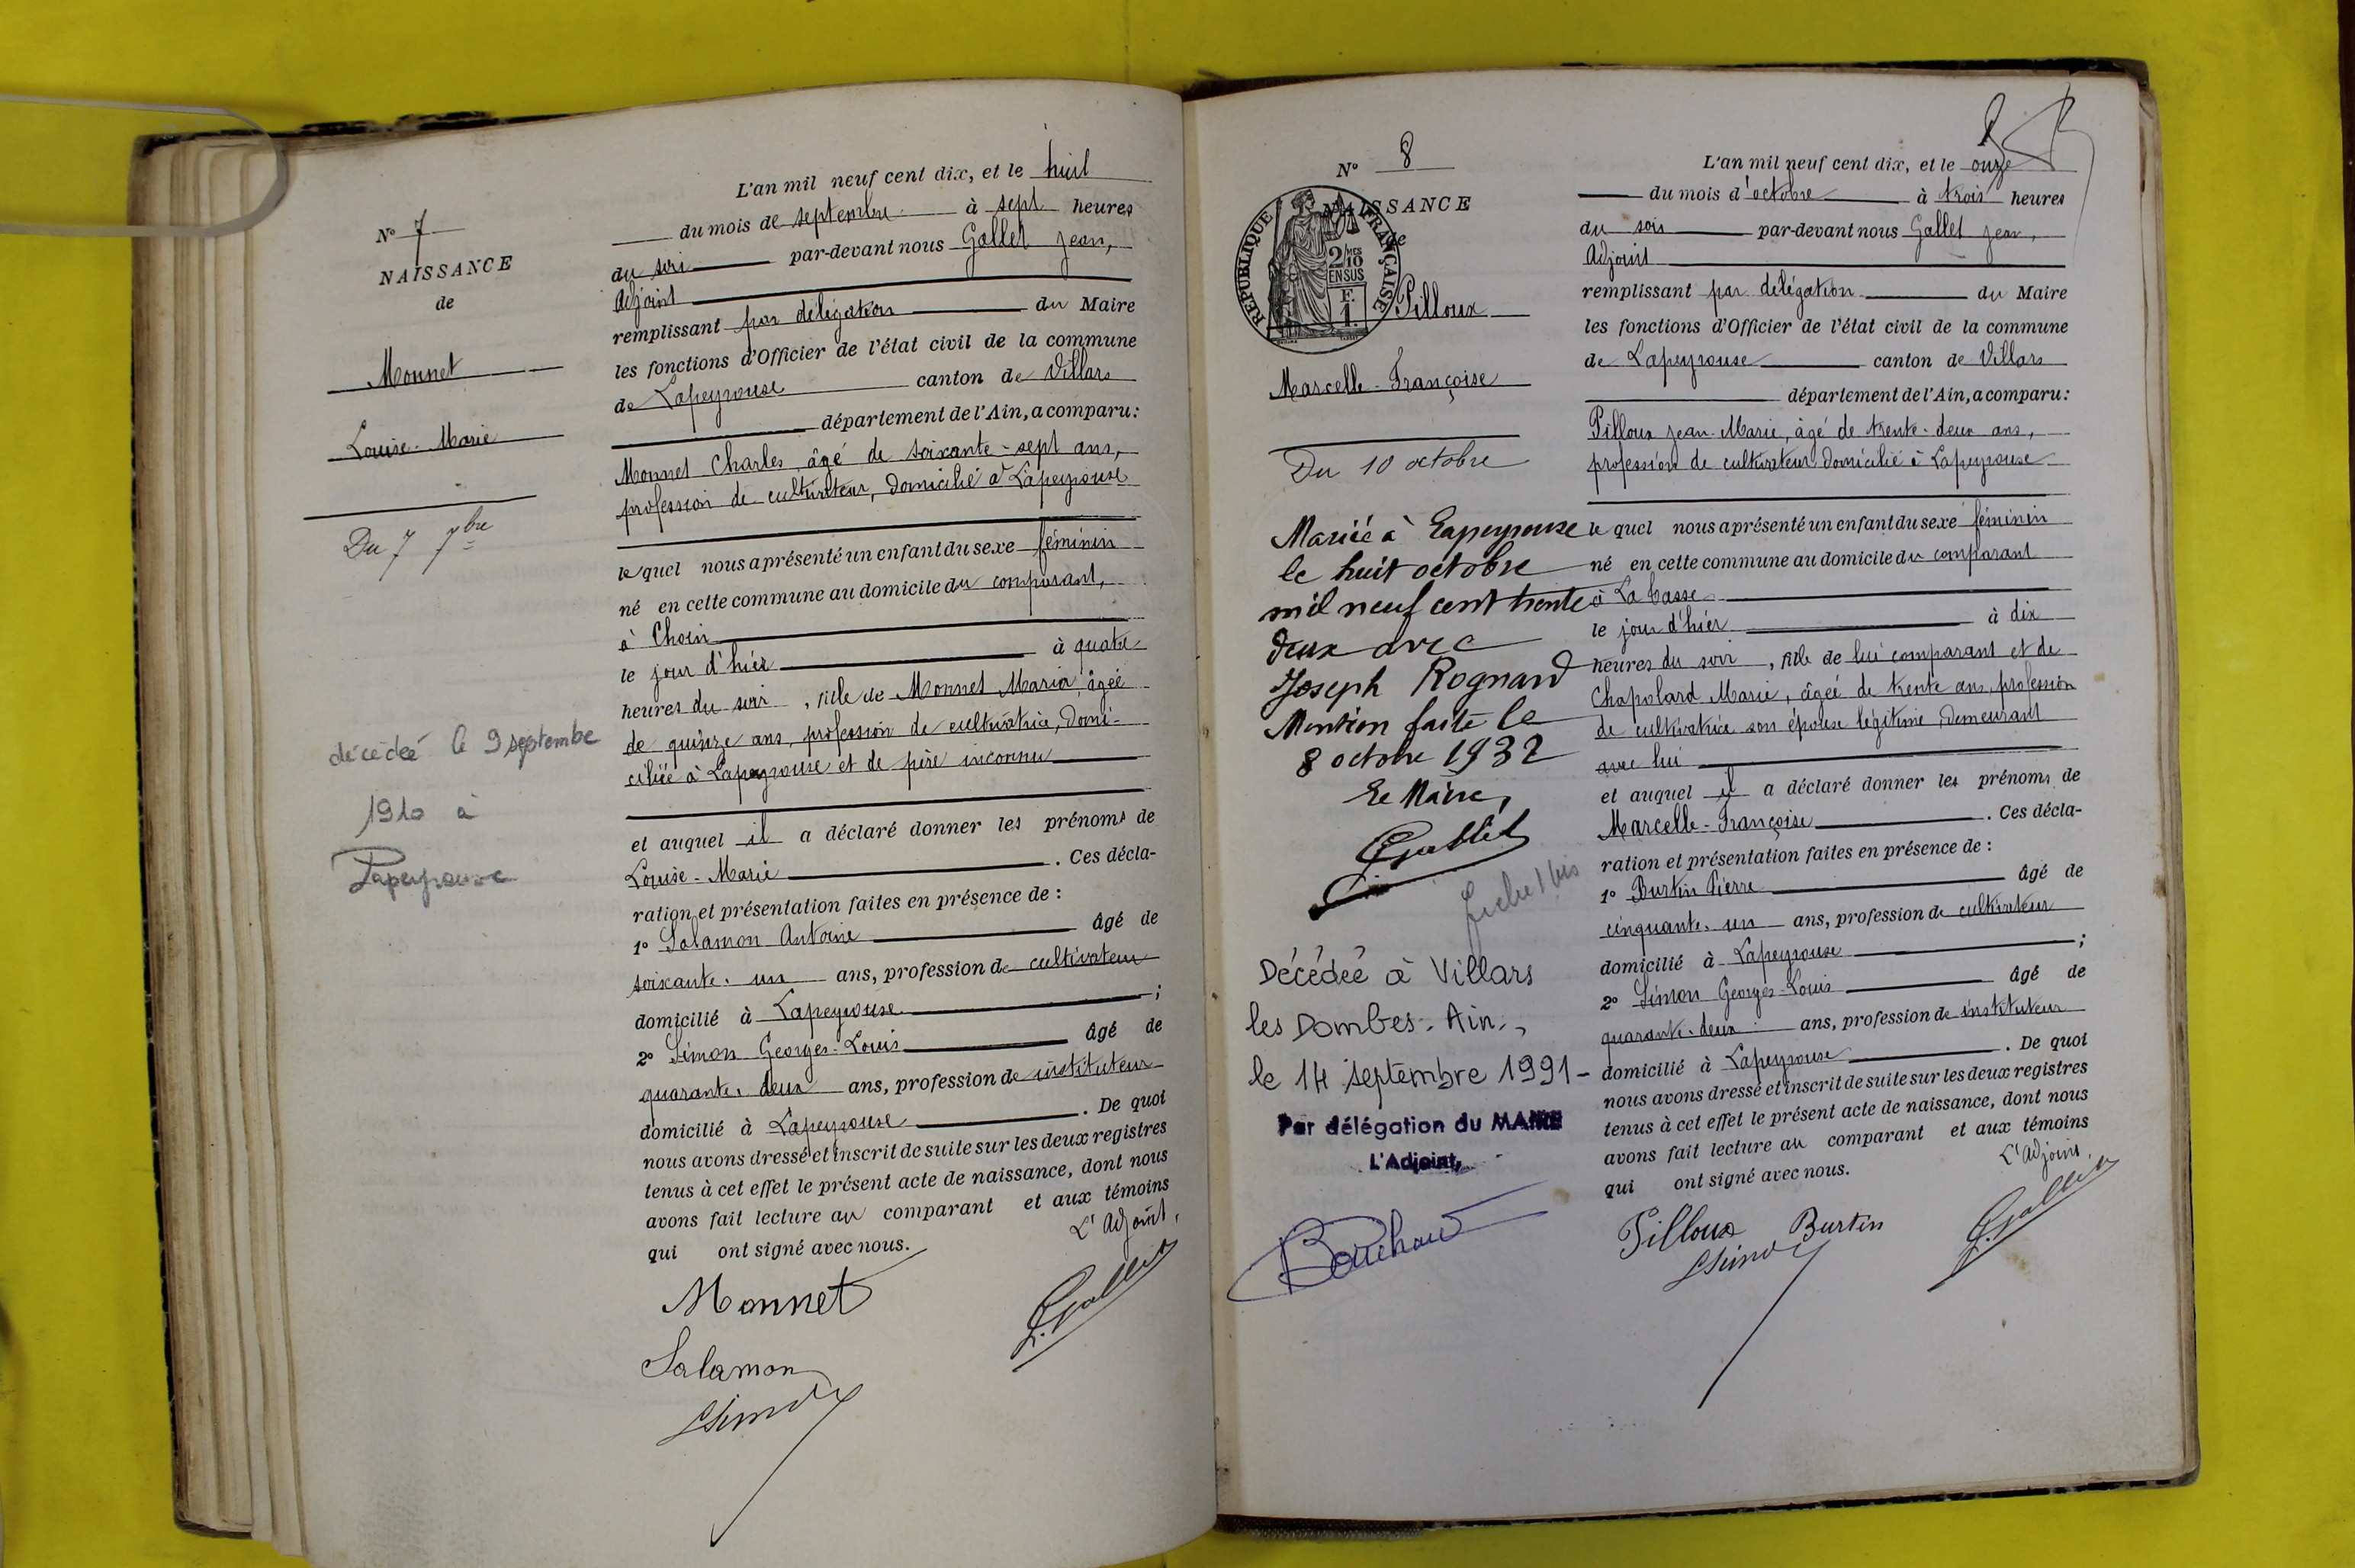 N° 7
NAISSANCE
de
Monnet
Louise-Marie
Du 7 7bre
décédée le 9 septembe
1910 à
Lapeyrouse
L'an mil neuf cent dix, et le huit
du mois de septembre à sept heures
du soir par-devant nous Gallet Jean,
Adjoint
remplissant par délégation du Maire
les fonctions d'Officier de l'état civil de la commune
de Lapeyrouse canton de Villars
département de l'Ain, a comparu:
Monnet Charles, âgé de soixante-sept ans,
profession de cultivateur, domicilié à Lapeyrouse
lequel nous a présenté un enfant du sexe féminin
né en cette commune au domicile du comparant,
à Choin
le jour d'hier à quatre
heures du soir, fille de Monnet Maria âgée
de quinze ans, profession de cultivatrice, domi-
ciliée à Lapeyrouse et de père inconnu
et auquel il a déclaré donner les prénoms de
Louise-Marie. Ces décla-
ration et présentation faites en présence de :
1° Salamon Antoine âgé de
soixante-un ans, profession de cultivateur
domicilié à Lapeyrouse ;
2° Simon Georges-Louis âgé de
quarante-deux ans, profession de instituteur
domicilié à Lapeyrouse. De quoi
nous avons dressé et inscrit de suite sur les deux registres
tenus à cet effet le présent acte de naissance, dont nous
avons fait lecture au comparant et aux témoins
qui ont signé avec nous. L'Adjoint,
Monnet
J. Gallet
Salamon
Simon
N° 8
NAISSANCE
de
REPUBLIQUE FRANÇAISE
2/10 EN SUS
F. 1.
Pilloux
Marcelle-Françoise
Du 10 octobre
Mariée à Lapeyrouse
le huit octobre
mil neuf cent trente
deux avec
Joseph Rognard
Mention faite le
8 octobre 1932
Le Maire,
Gallet
fiche 1 bis
Décédée à Villars
les Dombes. Ain.,
le 14 septembre 1991-
Par délégation du MAIRE
L'Adjoint,
L'an mil neuf cent dix, et le onze
du mois d'octobre à trois heures
du soir par-devant nous Gallet Jean,
Adjoint
remplissant par délégation du Maire
les fonctions d'Officier de l'état civil de la commune
de Lapeyrouse canton de Villars
département de l'Ain, a comparu:
Pilloux Jean-Marie, âgé de trente-deux ans,
profession de cultivateur domicilié à Lapeyrouse
lequel nous a présenté un enfant du sexe féminin
né en cette commune au domicile du comparant
à La basse
le jour d'hier à dix
heures du soir, fille de lui comparant et de
Chapolard Marie, âgée de trente ans, profession
de cultivatrice son épouse légitime, demeurant
avec lui
et auquel il a déclaré donner les prénoms de
Marcelle-Françoise. Ces décla-
ration et présentation faites en présence de :
1° Burtin Pierre âgé de
cinquante-un ans, profession de cultivateur
domicilié à Lapeyrouse ;
2° Simon Georges-Louis âgé de
quarante-deux ans, profession de instituteur
domicilié à Lapeyrouse. De quoi
nous avons dressé et inscrit de suite sur les deux registres
tenus à cet effet le présent acte de naissance, dont nous
avons fait lecture au comparant et aux témoins
qui ont signé avec nous. L'Adjoint,
Pilloux Burtin J. Gallet
Simon